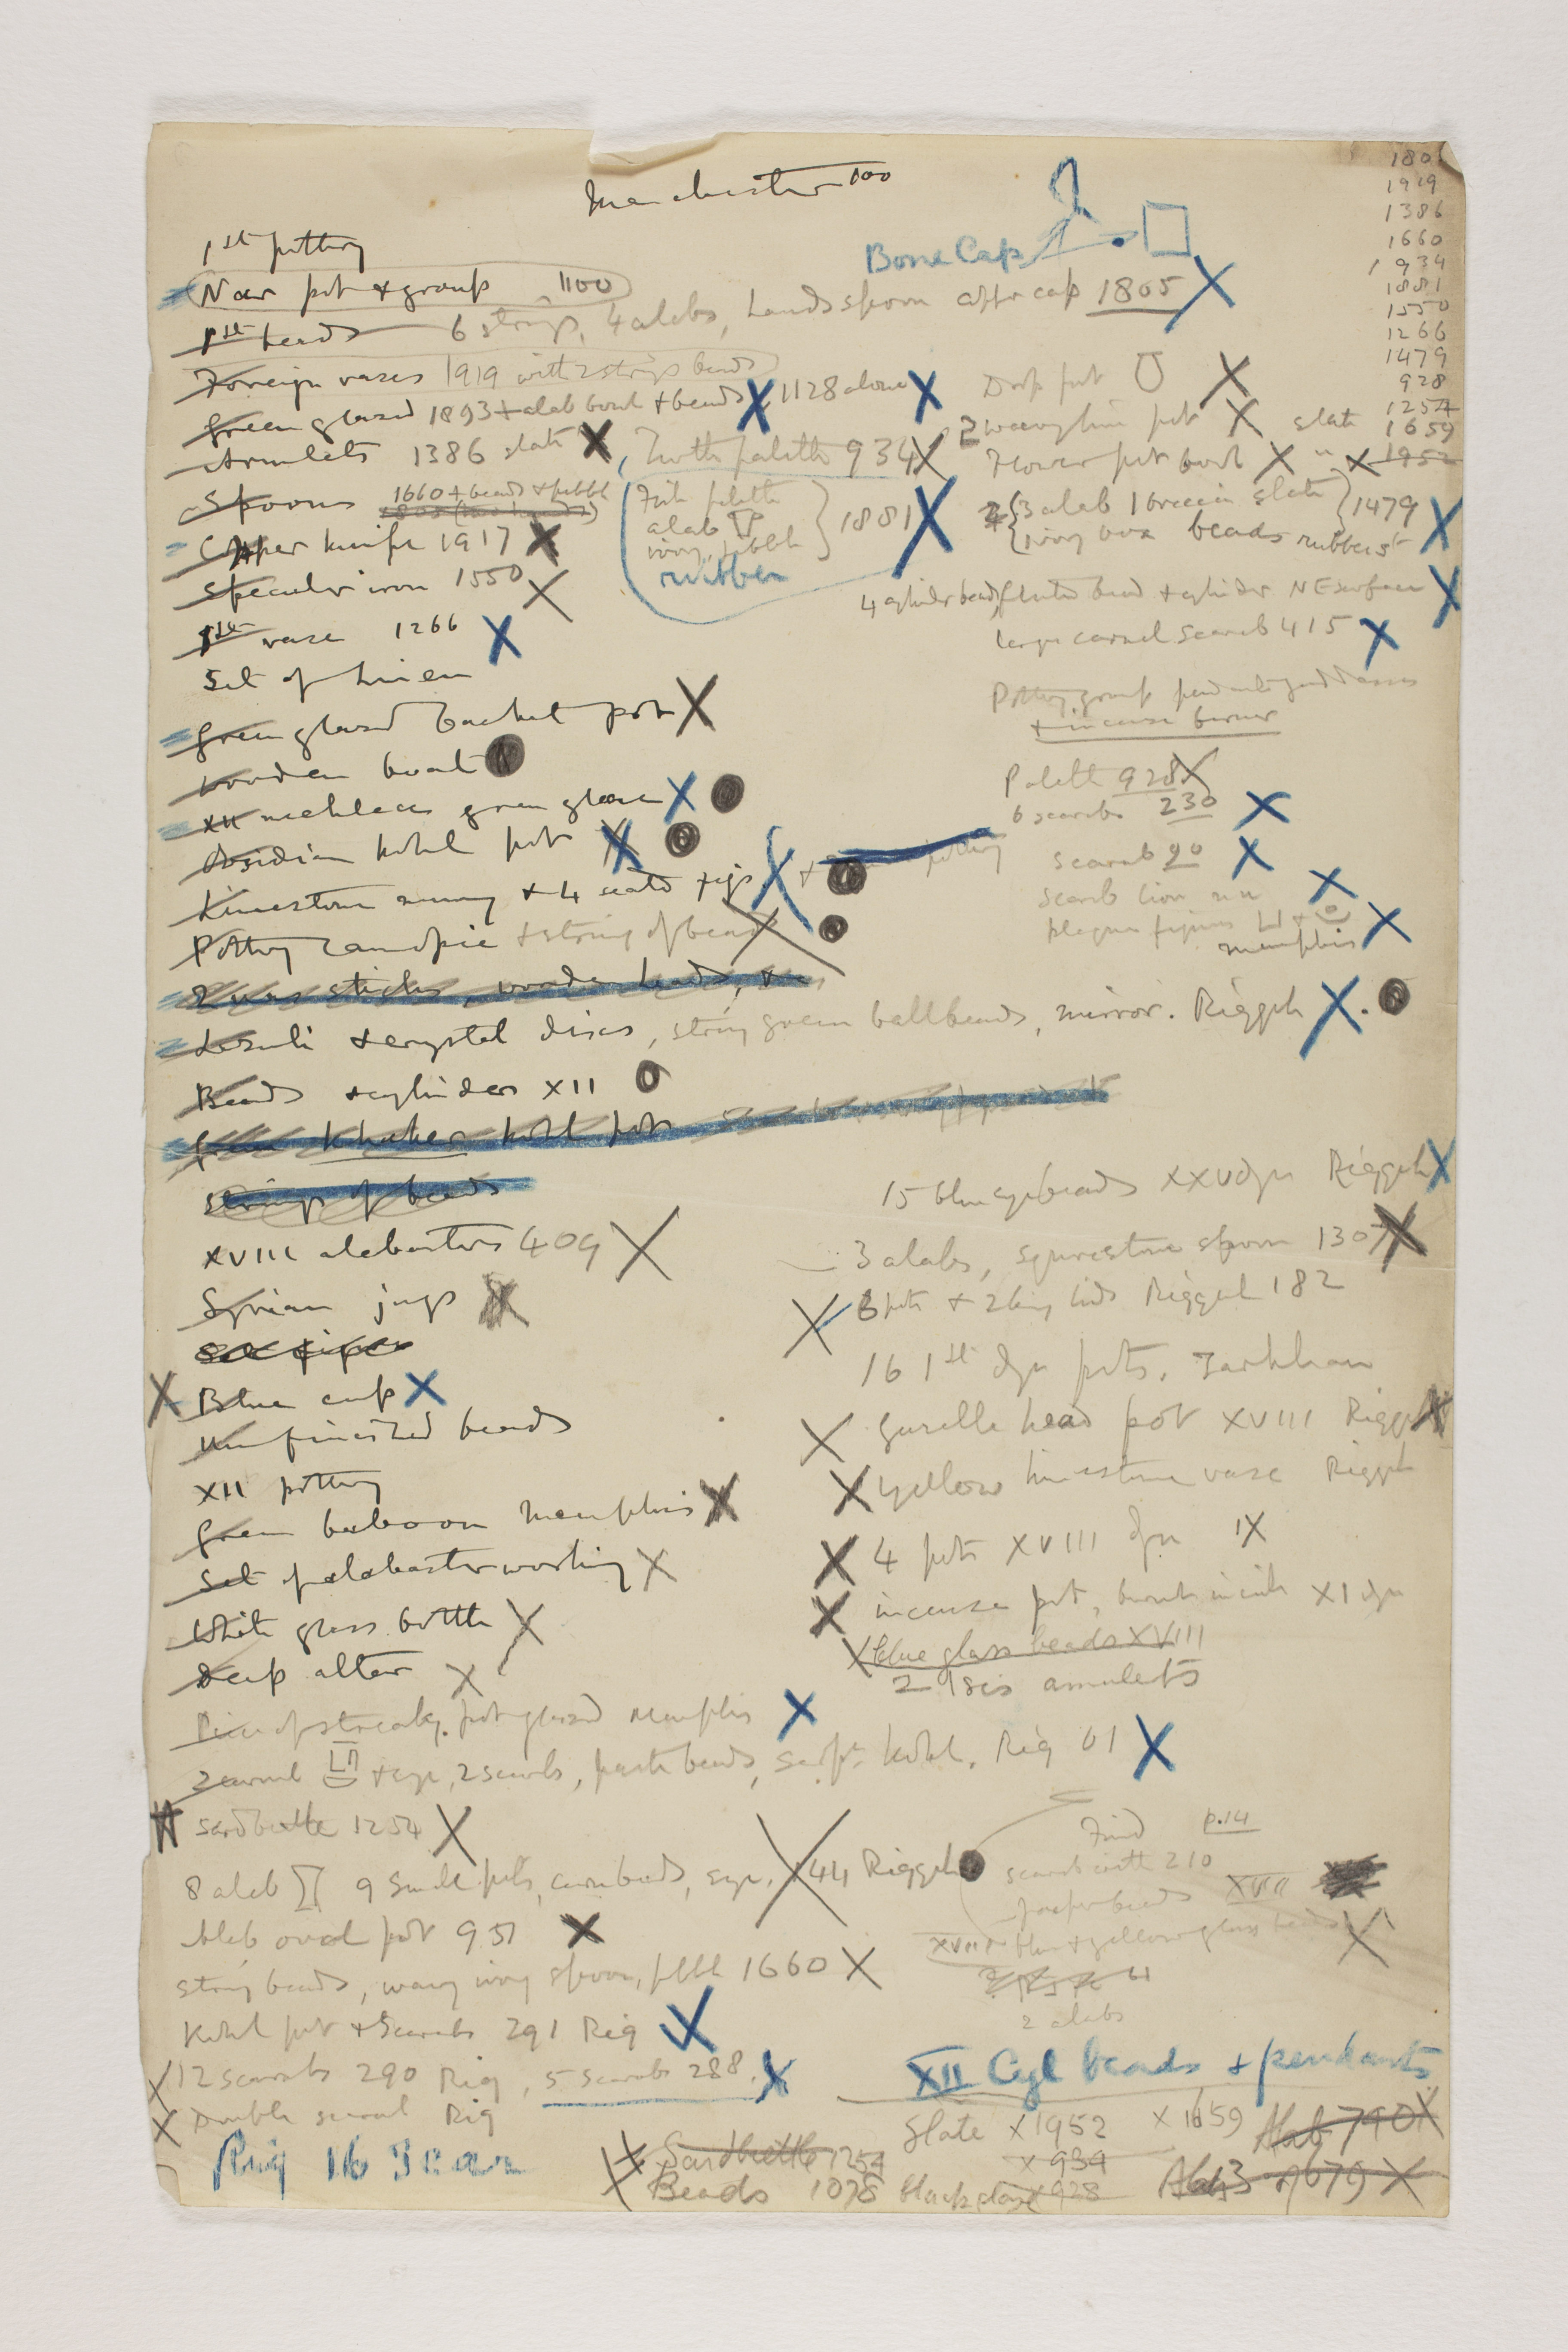 Manchester 100
1801
1919
1386
1660
1934
1881
1550
1266
1479
928
1254
1659
1952
1st pottery
Bone Cap
Nar pot & group 1100
1st beads 6 strings, 4 alabs, hands spoon cap 1805 X
Foreign vases 1919 with 2 strings beads
Green glazed 1893 + alab bowl + beads X 1128 alone X
Drop pot X
Armlets 1386 slate X, Tooth palette 934 X
2 wavy line pot X slate
Flower pot bowl X " X
Spoons 1660 + beads + pebble
Fish palette
alab
ivory, pebble
rubber
1881 X
3 alab 1 breccia slate
ivory box beads rubber st
1479 X
Copper knife 1917 X
Specular iron 1550 X
4 cylinder beads, fluted bead + cylinder NE surface X
1st vase 1266 X
large carnel scarab 415 X
Set of linen
Pottery group
+ incense burner
Green glazed basket pot X
Wooden boat
Palette 928 X
XII necklace green glaze X
6 scarabs 230 X
Obsidian kohl pot X
Scarab 90 X
Limestone + 4 seated figs X + pottery
Scarab lion X
plaque figures
memphis X
Pottery canopic + string of beads X
2 was sticks, wooden heads,
Lazuli + crystal discs, string green ball beads, mirror. Riqqeh X.
Beads + cylinders XII O
Green Khaker kohl pots
Strings of beads
15 blue eye beads XXV dyn Riqqeh X
XVIII alabasters 409 X
3 alabs, spoon 1307 X
Syrian jugs X
X 3 pots + 2 lids Riqqeh 182
16 1st dyn pots. Tarkhan
X Blue cup X
X Gazelle head pot XVIII Riqqeh X
Unfinished beads
X Yellow limestone vase Riqqeh
XII pottery
Green baboon Memphis X
X 4 pots XVIII dyn X
Set of alabaster working X
X incense pot, XI dyn
White glass bottle X
X blue glass beads XVIII
2 Isis amulets
Deep altar X
Piece of streaky pot glazed Memphis X
2 carnel + eye, 2 scarabs, paste beads, serpt kohl. Riq 61 X
Sard beetle 1254 X
Find p.14
8 alab 9 small pots, carn beads, eye. X 44 Riqqeh
scarab with 210
Jasper beads XVIII
Alab oval pot 951 X
XVIII blue + yellow glass beads X
String beads, wavy ivory spoon, pebble 1660 X
2 alabs
Kohl pot + scarabs 291 Riq X
X 12 scarabs 290 Riq, 5 scarabs 288. X
XII Cyl beads + pendants
X Double scarab Riq
Slate X 1952 X 1659 Alab 790 X
Riq 16
X Sard beetle 1254
X 934
X Beads 1078 X 928
Alab 3 of 679 X